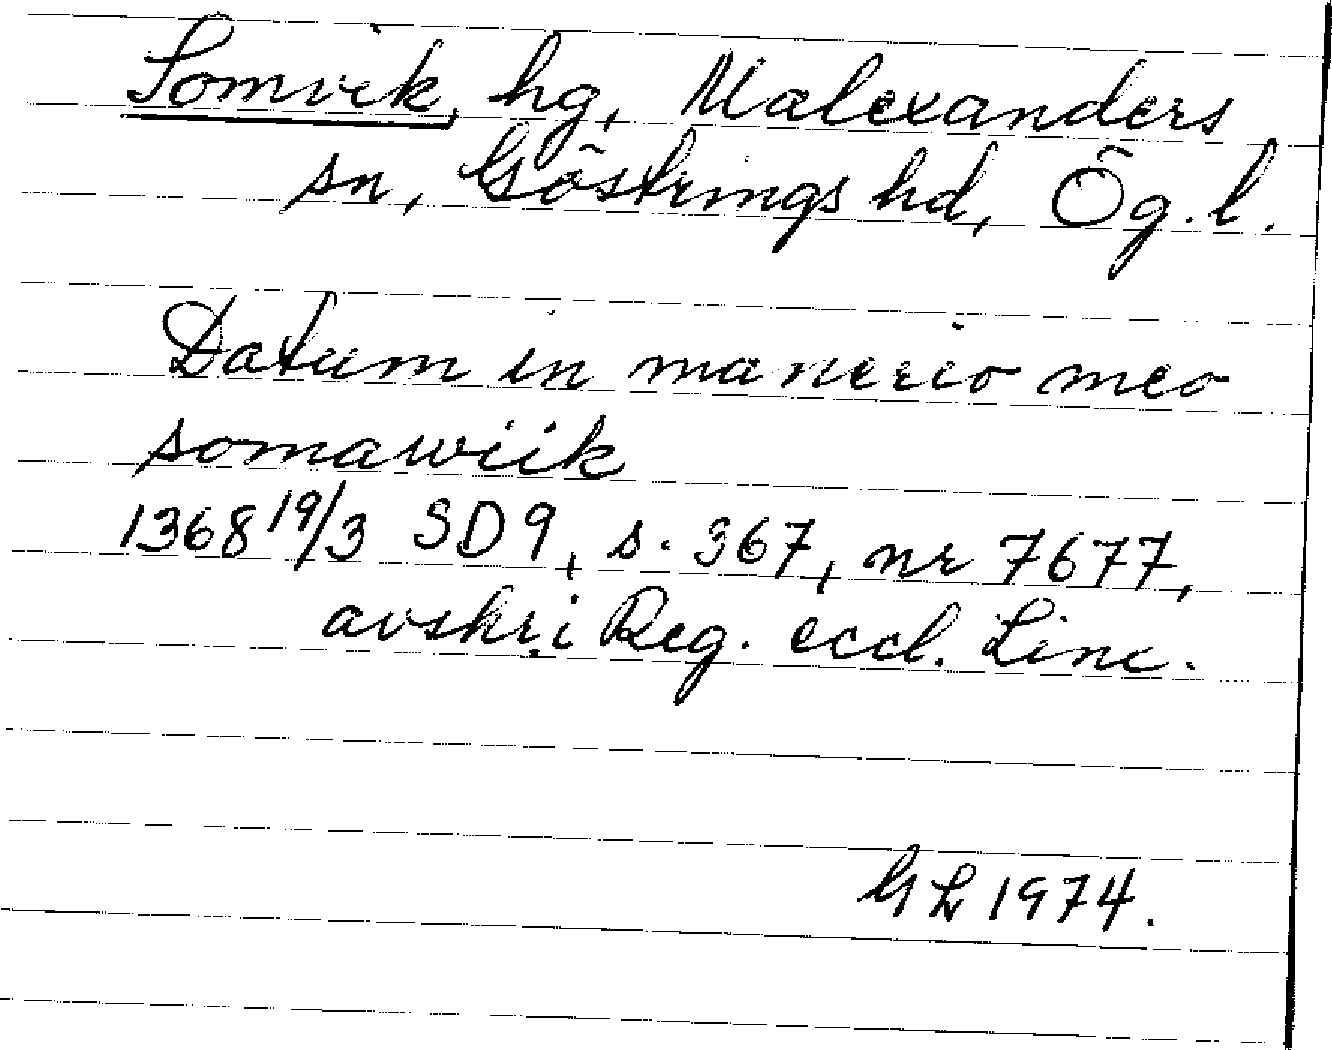 Somvik, hg, Malexanders
sn, Göstrings hd, Ög. l.
Datum in manerio meo
somawiik
1368 19/3 SD 9, s. 367, nr 7677,
avskr. i Reg. eccl. Linc.
GL 1974.